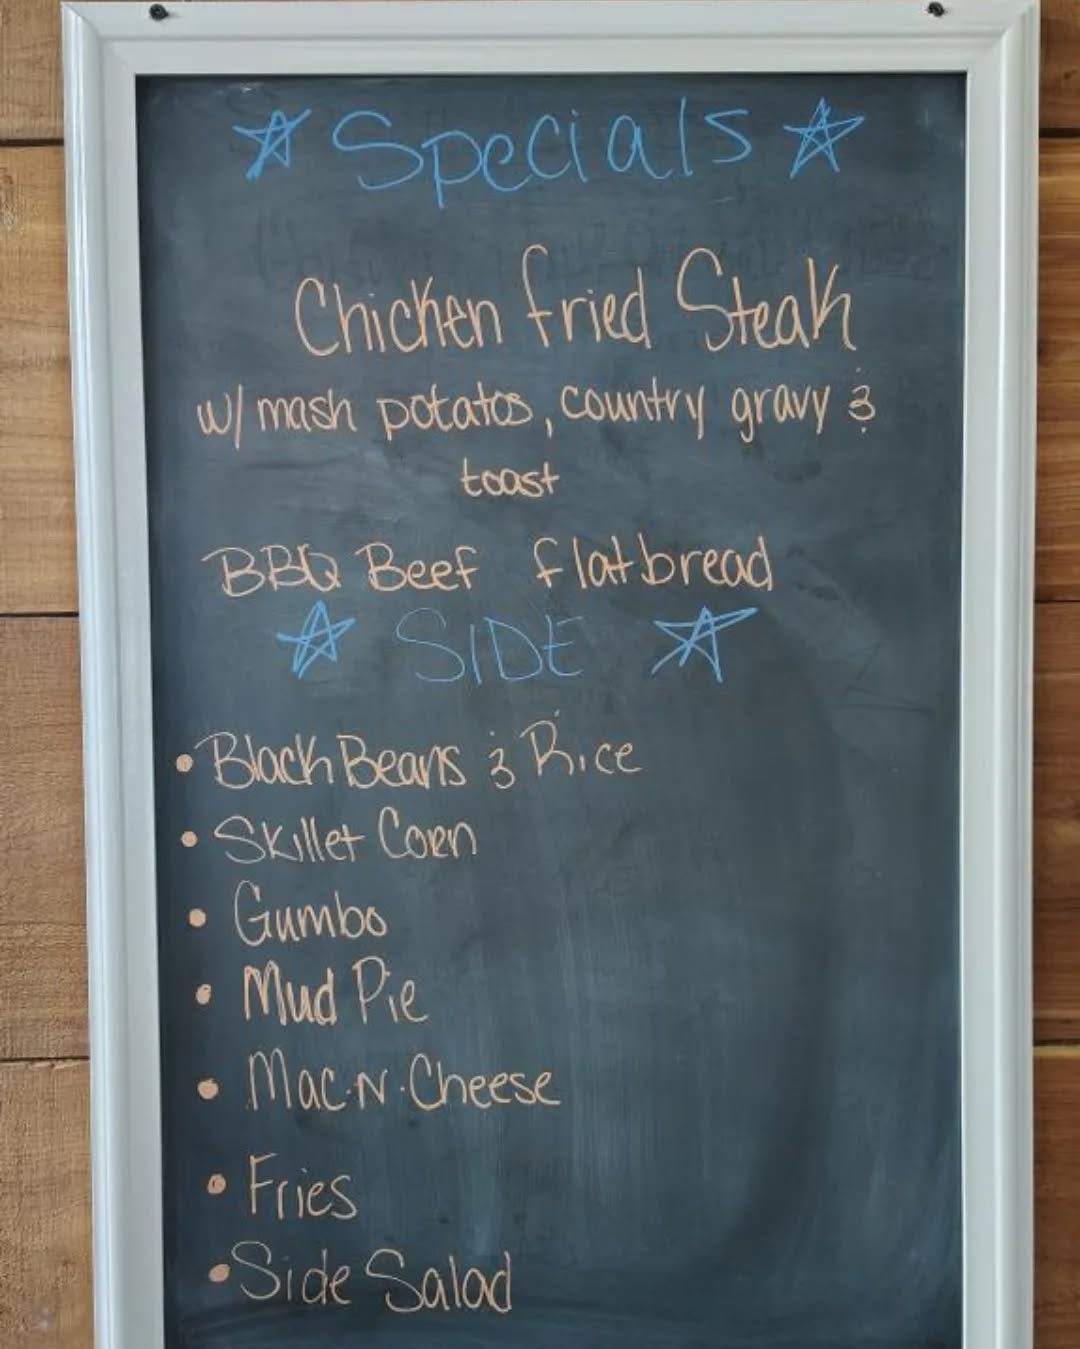 Specials
Chicken fried Steak
w/ mash potatos, country gravy &
toast
BBQ Beef flatbread
SIDE
• Black Beans & Rice
• Skillet Corn
• Gumbo
• Mud Pie
• Mac·N·Cheese
• Fries
• Side Salad